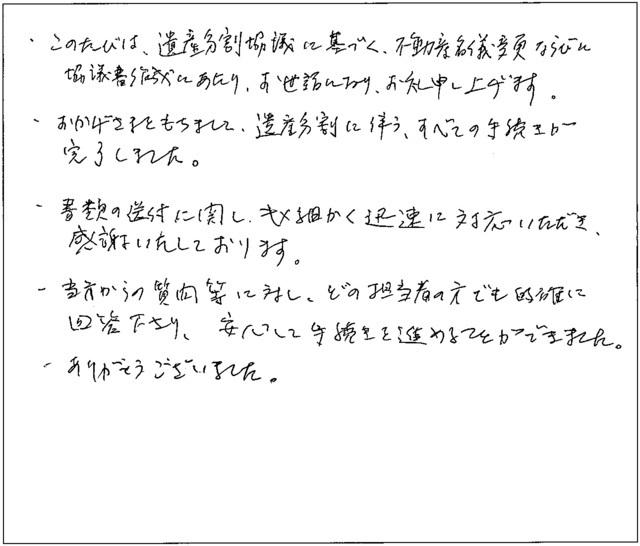 ・このたびは、遺産分割協議に基づく、不動産名義変更ならびに
協議書作成にあたり、お世話になり、お礼申し上げます。
・おかげさまをもちまして、遺産分割に伴う、すべての手続きが
完了しました。
・書類の送付に関し、きめ細かく迅速に対応いただき、
感謝いたしております。
・当方からの質問等に対し、どの担当者の方でも的確に
回答下さり、安心して手続きを進めることができました。
・ありがとうございました。